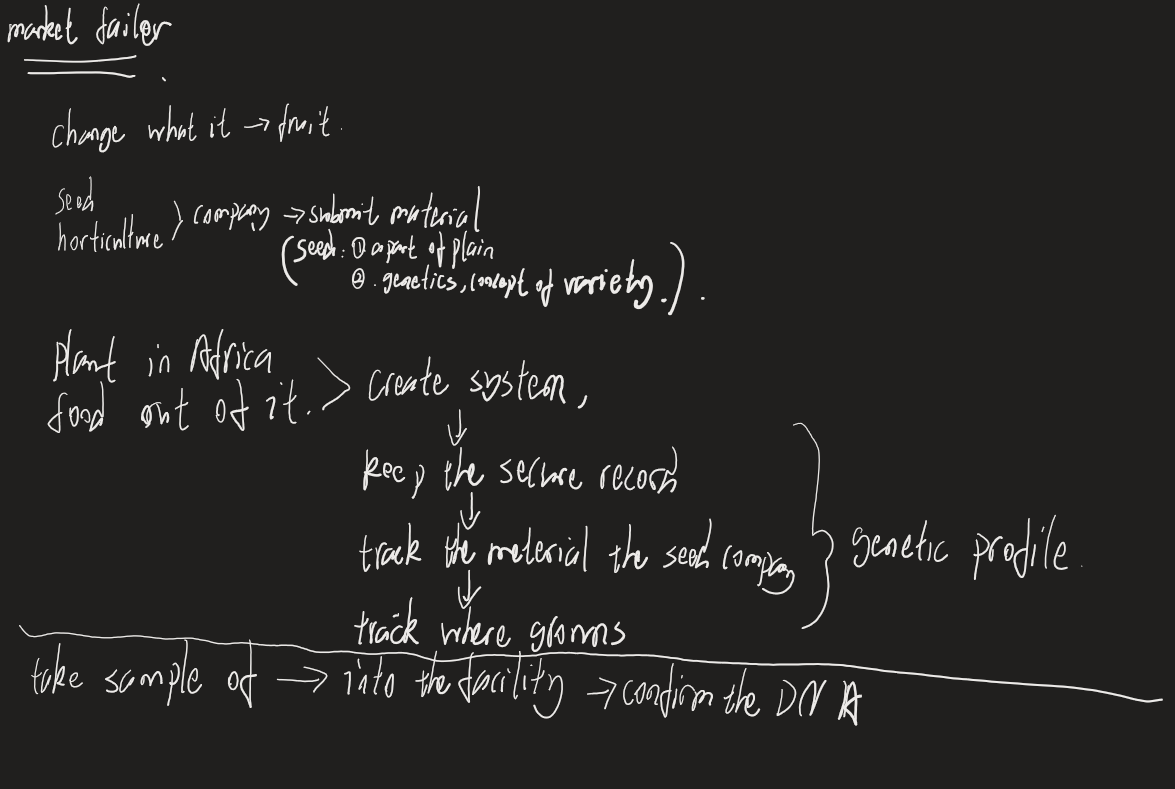 market failer
change what it → fruit.
seed
horticulture } company → submit material
(seed: ① a part of plain
② . genetics, concept of variety.).
Plant in Africa
food out of it. > create system,
↓
keep the secure record
↓
track the material the seed company
↓
track where growns
} genetic profile.
take sample of → into the facility → confirm the DNA